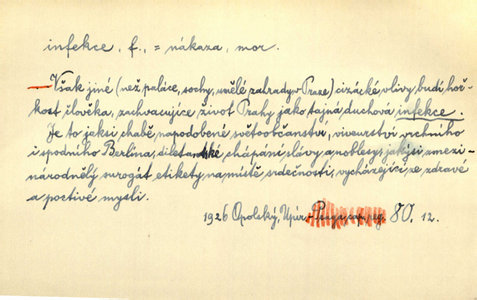 infekce, f., = nákaza, mor.
Však jiné (než paláce, sochy, umělé zahrady v Praze) cizácké vlivy budí hoř-
kost člověka, zachvacujíce život Prahy jako tajná duchová infekce.
Je to jakési chabě napodobené světoobčanství, viveurství vrchního
i spodního Berlína, diletantské chápání slávy a noblesy, jakýsi mezi-
národnělý surogát etikety na místě srdečnosti, vycházející ze zdravé
a poctivé mysli.
1926 Opolský, Upír 80. 12.